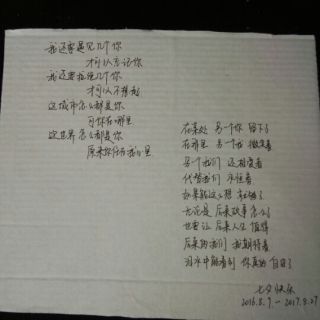 我还要遇见几个你
才可以忘记你
我还要拒绝几个你
才可以不想起
这城市怎么都是你
可你在哪里
这世界怎么都是你
原来你住在我心里
在某处 另一个你 留下了
在那里 另一个我 微笑着
另一个我们 还相爱着
代替我们 永恒着
如果能这么想 就够了
无论是 后来故事 怎么了
也要让 后来人生 值得
后来的我们 我期待着
泪水中能看到 你真的 自由了
七夕快乐
2016.8.9.-2017.8.27